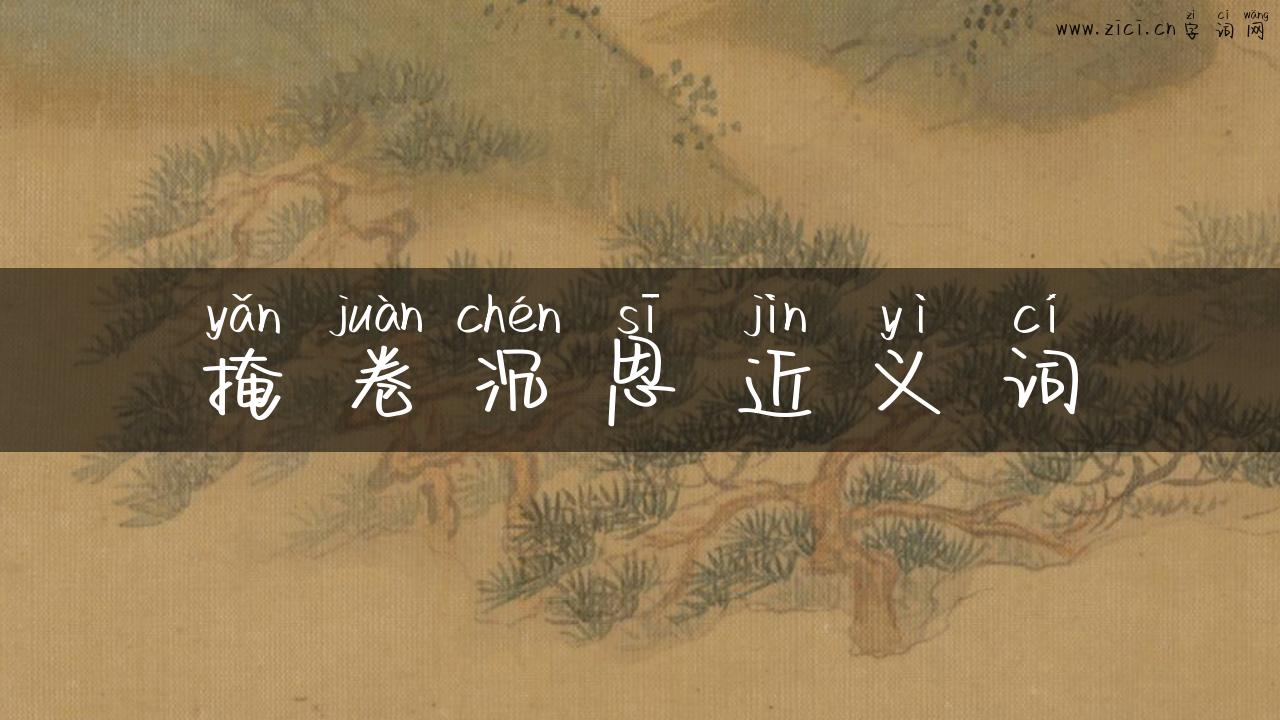 zì cí wǎng
www.zici.cn 字词网
yǎn juàn chén sī jìn yì cí
掩卷沉思近义词